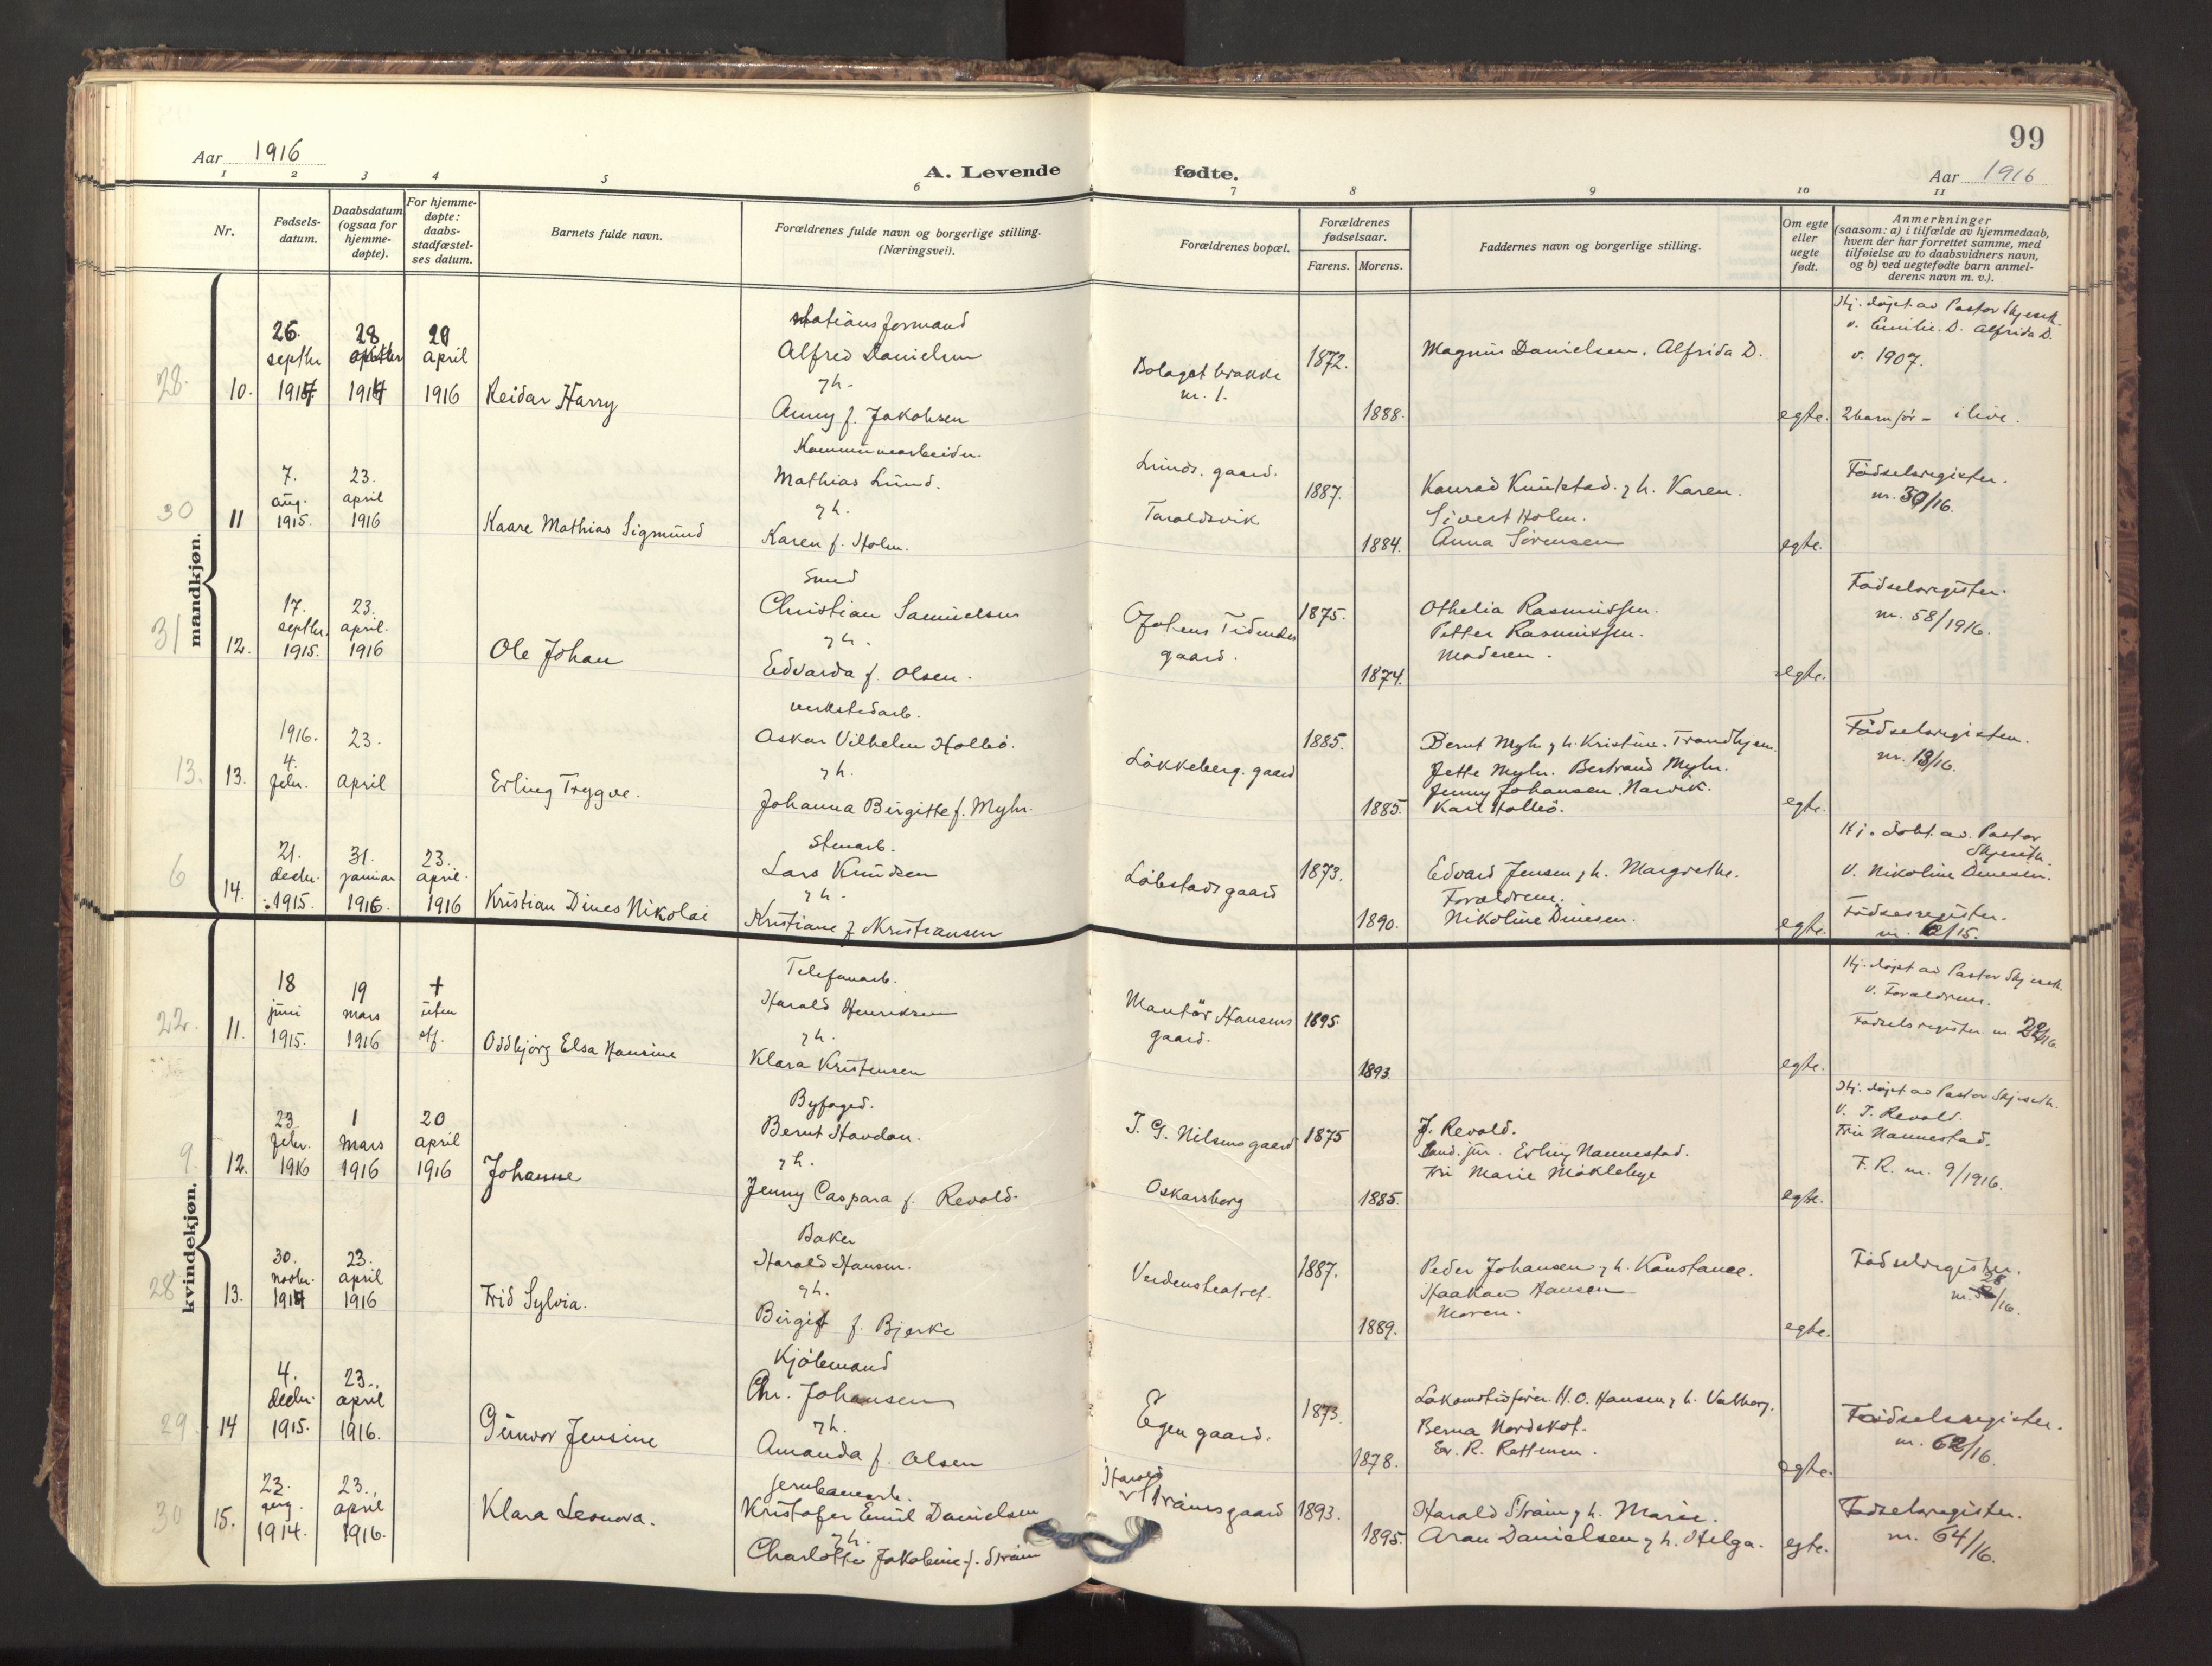 99
Aar 1916
A. Levende
fødte.
Aar 1916
1 2 3 4 5 6 7 8 9 10 11
Nr.
Fødsels-
datum.
Daabsdatum
(ogsaa for
hjemme-
døpte).
For hjemme-
døpte:
daabs-
stadfæstel-
ses datum.
Barnets fulde navn.
Forældrenes fulde navn og borgerlige stilling.
(Næringsvei).
Forældrenes bopæl.
Forældrenes
fødselsaar.
Farens. Morens.
Faddernes navn og borgerlige stilling.
Om egte
eller
uegte
født.
Anmerkninger
(saasom: a) i tilfælde av hjemmedaab,
hvem der har forrettet samme, med
tilføielse av to daabsvidners navn,
og b) ved uegtefødte barn anmel-
derens navn m. v.).
mandkjøn.
28.
10.
26.
septbr
28
20
april
1916
Reidar Harry
stationsformand
Alfred Danielsen
og h.
Anny f. Jakobsen
Bolaget brakke
nr. 1.
1872.
1888.
Magnus Danielsen, Alfrida D.
egte.
Hj. døpt av Pastor Skjeseth
v. Emilie D. Alfrida D.
v. 1907.
2 barn før - i live.
30
11
7.
aug.
1915.
23.
april
1916
Kaare Mathias Sigmund
Kommunearbeider.
Mathias Lund.
og h.
Karen f. Holm.
Lunds. gaard.
Taraldsvik
1887.
1884.
Konrad Knutstad og h. Karen.
Sivert Holm.
Anna Sørensen
egte.
Fødselsregister.
nr. 30/16.
31
12.
17.
septbr.
1915.
23.
april.
1916
Ole Johan
Smed
Christian Samuelsen
og h.
Edvarda f. Olsen.
Ofotens Tidendes
gaard.
1875.
1874.
Othelia Rasmussen.
Petter Rasmussen.
Moderen.
egte.
Fødselsregister.
nr. 58/1916.
13.
13.
1916.
4.
febr.
23.
april
Erling Trygve.
verkstedarb.
Oskar Vilhelm Holbø.
og h.
Johanna Birgitte f. Myhr.
Løkkeberg. gaard
1885.
1885.
Bernt Myhr og h. Kristine. Trondhjem.
Jette Myhr. Bertrand Myhr.
Jenny Johansen, Narvik.
Karl Holbø.
egte.
Fødselsregister.
nr. 13/16.
6
14.
21.
decbr.
1915.
31.
januar
1916.
23.
april.
1916
Kristian Dines Nikolai
Stenarb.
Lars Knudsen
og h.
Kristiane f. Kristiansen
Løbstads gaard
1873.
1890.
Edvard Jensen og h. Margrethe.
Forældrene.
Nikoline Dinesen.
egte.
Hj. døbt. av. Pastor
Skjeseth.
v. Nikoline Dinesen.
Fødselsregister.
kvindekjøn.
22.
11.
18
juni
1915.
19
mars
1916
+
uten
stf.
Oddbjørg Elsa Hansine
Telefonarb.
Harald Henriksen
og h.
Klara Kristensen
Montør Hansens
gaard.
1895.
1893.
egte.
Hj. døpt av Pastor Skjeseth.
v. Forældrene.
Fødselsregister nr. 22/16.
9.
12.
23.
febr.
1916
1
mars
1916
20
april
1916
Johanne
Byfoged.
Bernt Havdan.
og h.
Jenny Caspara f. Revold.
T. G. Nilsens gaard
Oskarsborg
1875
1885.
J. Revold.
Cand. jur. Erling Nannestad.
Fru Marie Møklebye
egte.
Hj. døpt av Pastor Skjeseth.
v. J. Revold.
Fru Nannestad.
F. R. nr. 9/1916.
28
13.
30.
novbr.
23.
april
1916
Frid Sylvia.
Baker
Harald Hansen.
og h.
Birgit f. Bjerke
Verdensteatret.
1887.
1889.
Peder Johansen og h. Konstance.
Haakon Hansen
Moren.
egte.
Fødselsregister.
nr. 28/16.
29
14
4.
decbr.
1915.
23.
april
1916.
Gunvor Jensine
Kjølemand
Chr. Johansen
og h.
Amanda f. Olsen
Egen gaard.
1873.
1878.
Lokomotivfører H. O. Hansen og h. Valborg.
Berna Nordskot.
egte.
Fødselsregister.
nr. 62/16.
30
15.
23.
aug.
1914.
23.
april
1916.
Klara Leonora.
Jernbanearb.
Kristofer Emil Danielsen
og h.
Charlotte Jakobine f. Strøm
Harald
Strøms gaard
1893.
1895.
Harald Strøm og h. Marie.
Aron Danielsen og h. Helga.
egte.
Fødselsregister.
nr. 64/16.